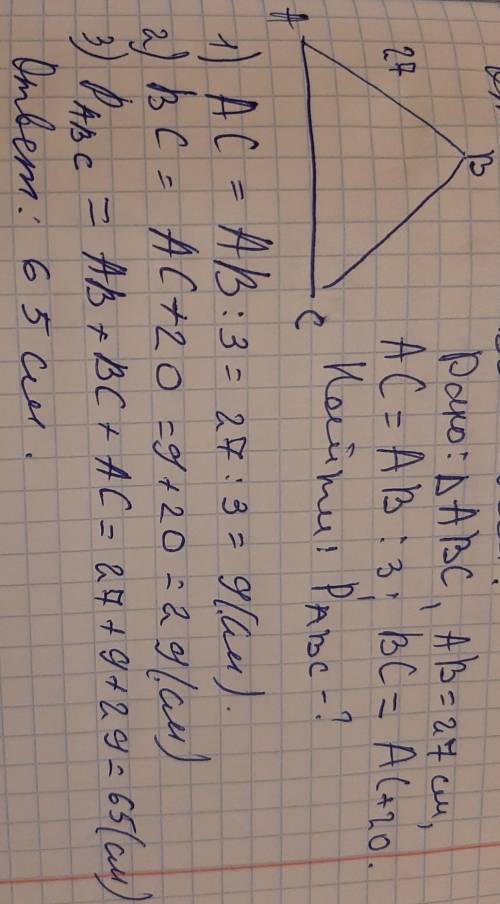 Дано: ΔABC, AB=27 см,
AC = AB : 3; BC = AC+20.
Найти: P ABC - ?
A
27
B
C
1) AC = AB : 3 = 27 : 3 = 9(см).
2) BC = AC+20 = 9+20 = 29(см)
3) P ABC = AB + BC + AC = 27 + 9 + 29 = 65(см)
Ответ: 65 см.